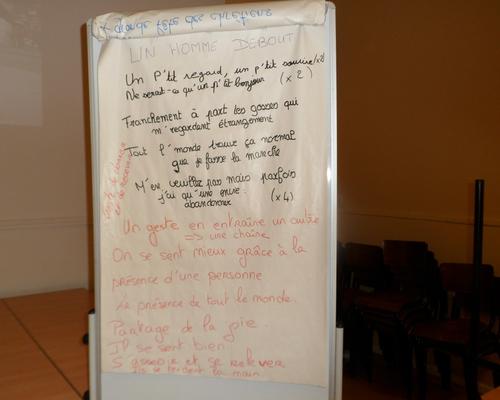 grande fête des chrétiens
UN HOMME DEBOUT
Un P'tit regard, un p'tit sourire (x2)
Ne serait-ce qu'un p'tit bonjour (x2)
Franchement à part les gosses qui
m'regardent étrangement
Tout l'monde trouve ça normal
que je fasse la manche
M'en veuillez pas mais parfois
j'ai qu'une envie
abandonner (x4)
Un geste en entraîne un autre
=> une chaîne
On se sent mieux grâce à la
présence d'une personne
La présence de tout le monde.
Partage de la joie.
Il se sent bien
S'asseoir et se relever
ils se tendent la main